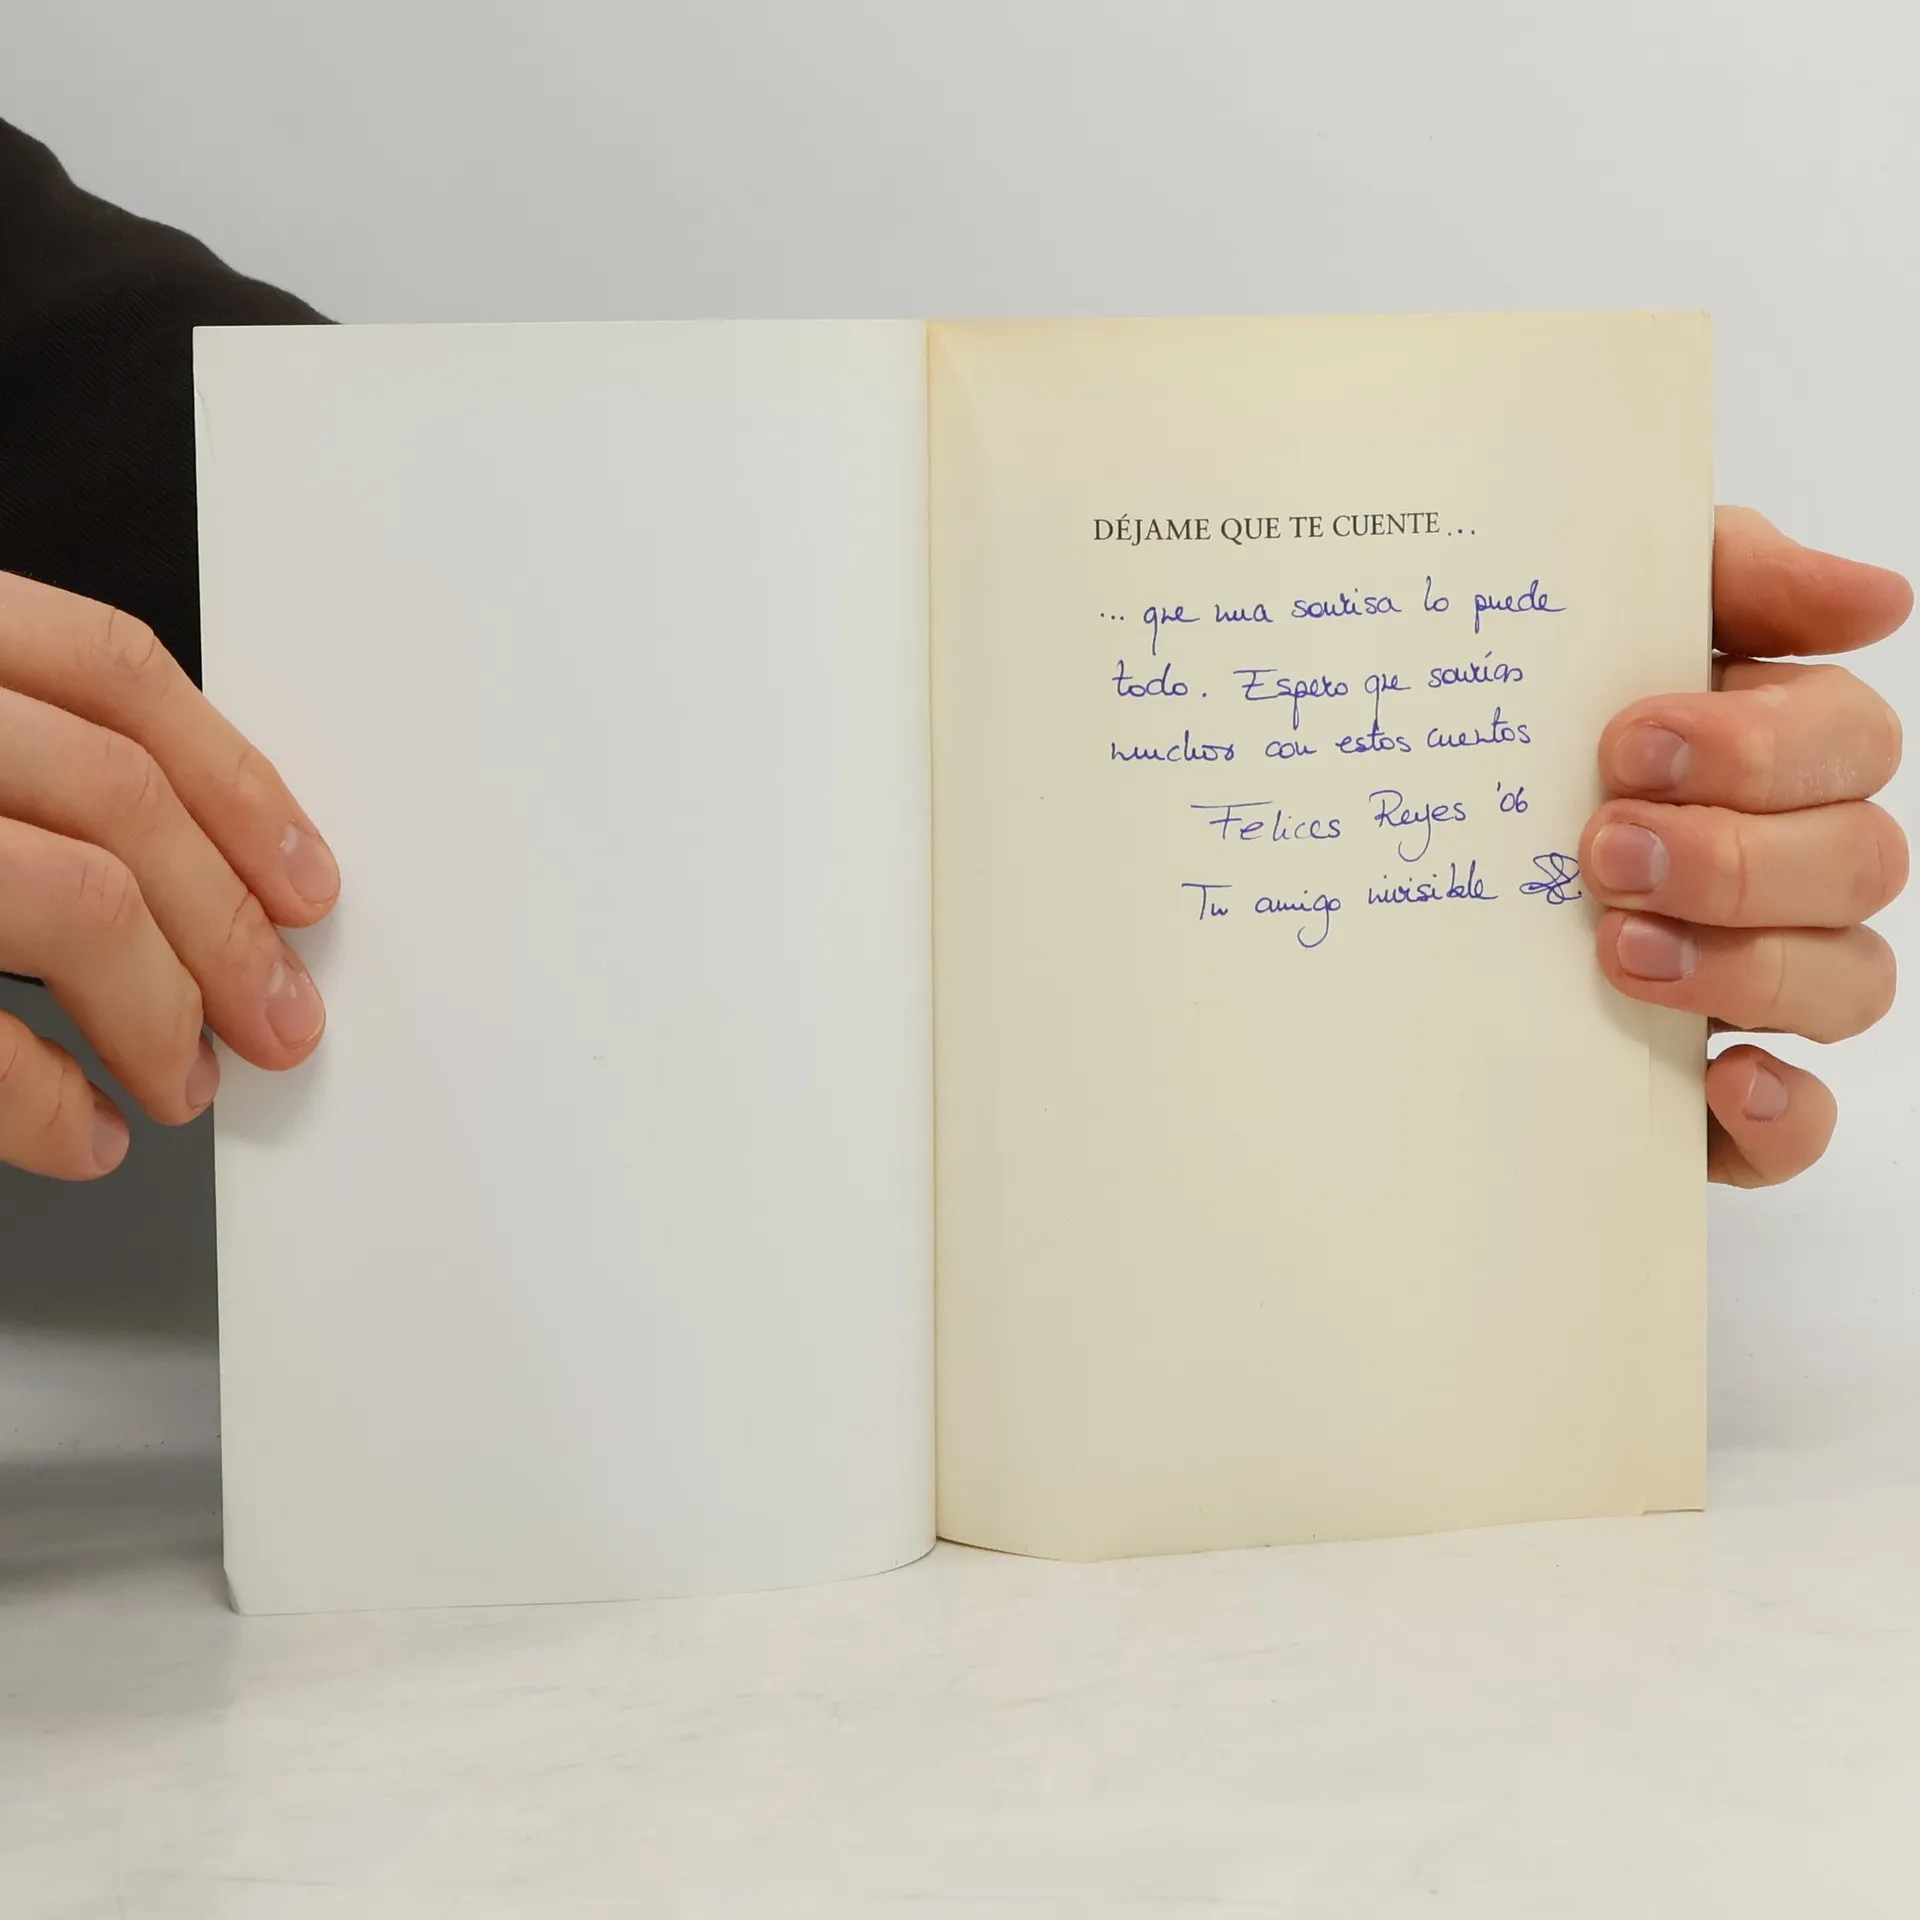 DÉJAME QUE TE CUENTE...
... que una sonrisa lo puede
todo. Espero que sonrías
mucho con estos cuentos
Felices Reyes '06
Tu amigo invisible